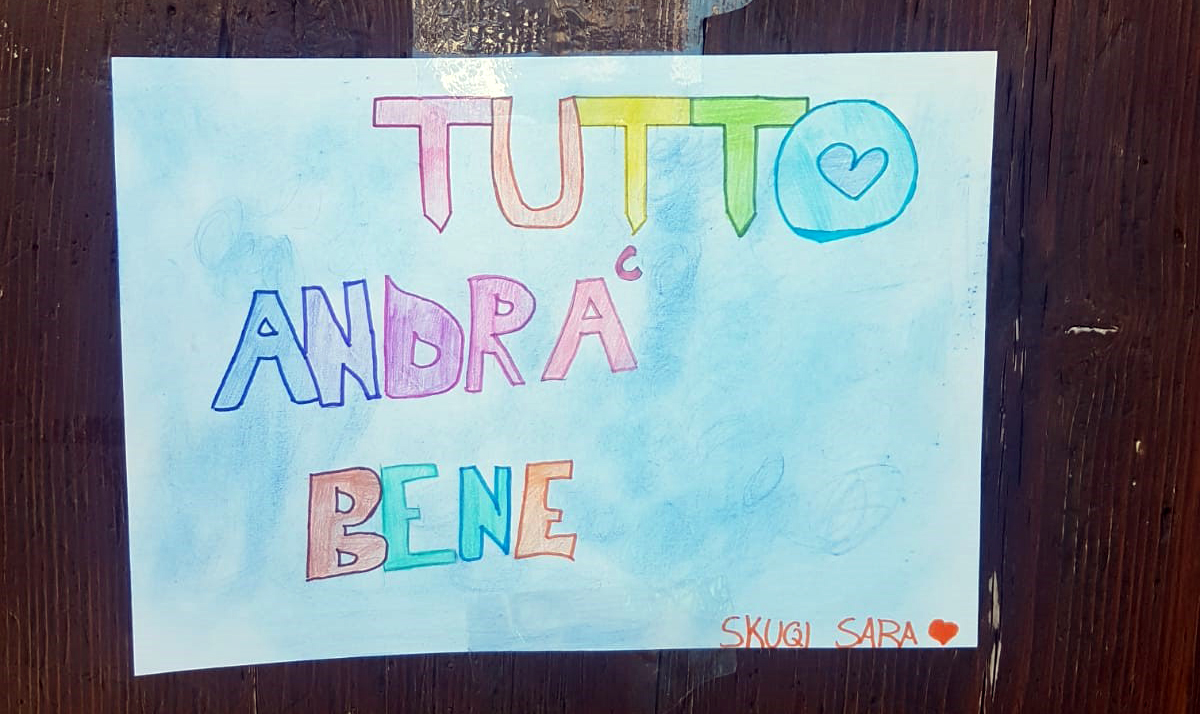 TUTTO
ANDRA'
BENE
SKUQI SARA